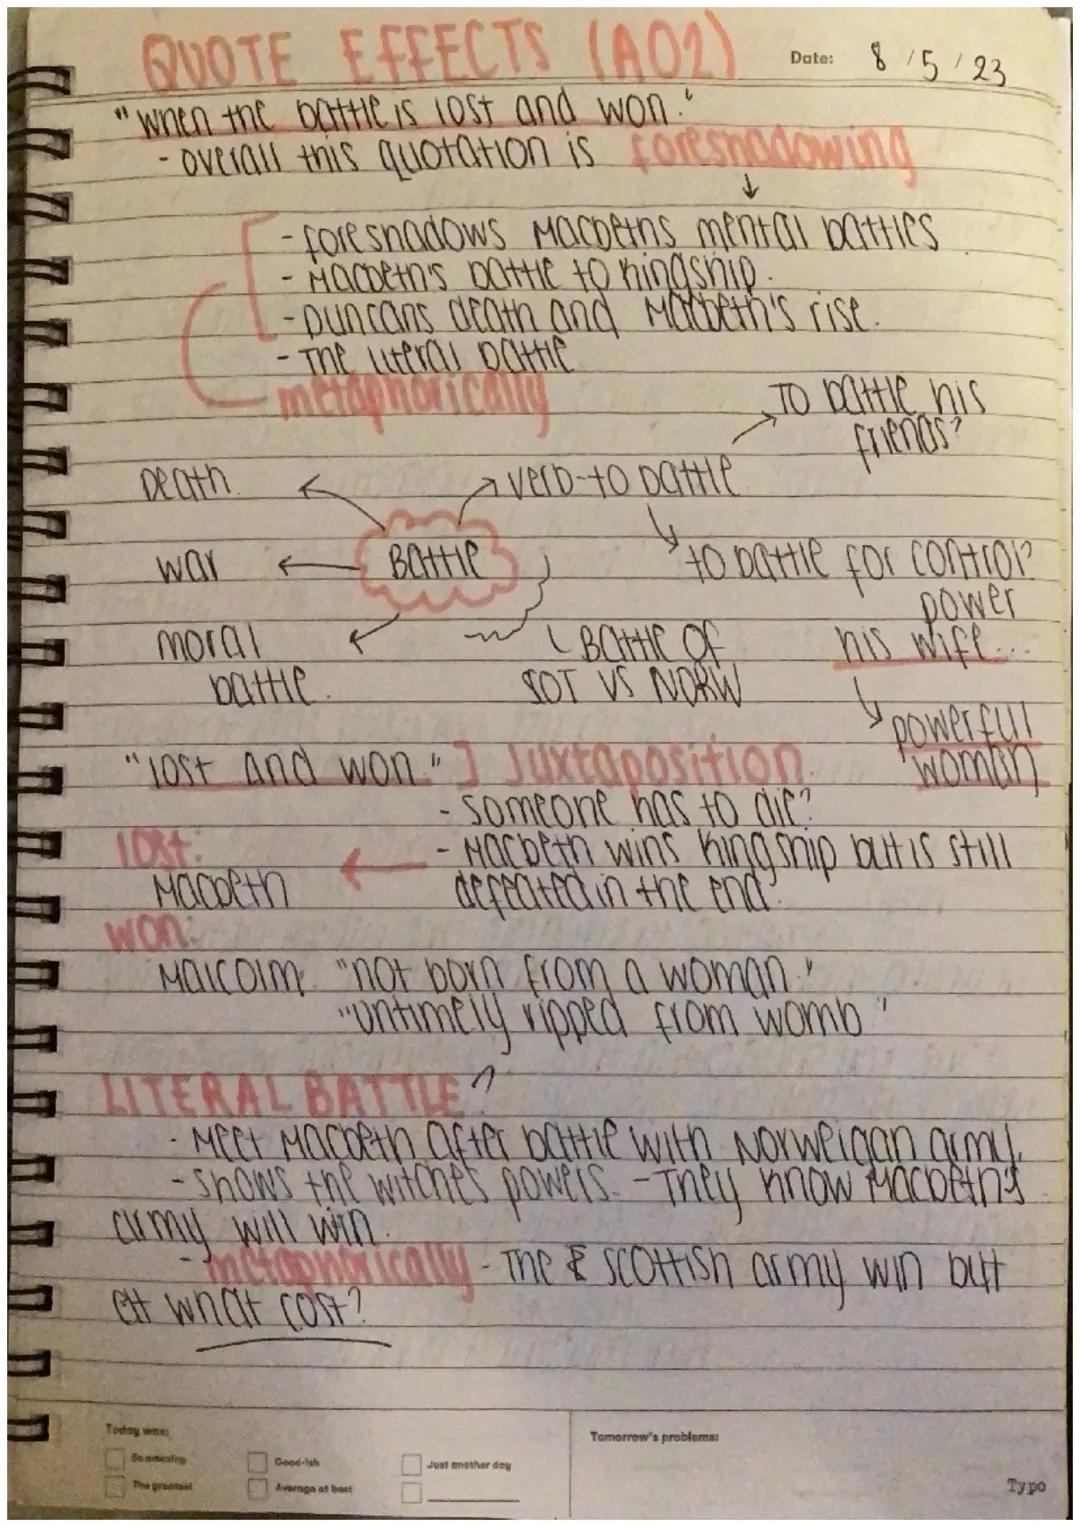 QUOTE EFFECTS (AO2)
Date: 8/5/23
"when the battle is lost and won."
- overall this quotation is foreshadowing
- foreshadows Macbeths mental battles
- Macbeth's battle to kingship.
- Duncans death and Macbeth's rise.
- The literal battle
metaphorically
To battle his
friends?
Death.
verb-to battle
war
Battle
to battle for control?
power
moral
battle.
Battle of
SOT VS NORW
his wife...
powerful
woman
"lost and won" ] Juxtaposition.
- someone has to die?
lost:
- Macbeth wins kingship but is still
Macbeth
defeated in the end.
won:
Malcolm "not born from a woman."
"untimely ripped from womb"
LITERAL BATTLE?
- Meet Macbeth after battle with Norweigan army.
- shows the witches powers. - They know Macbeth's
army will win.
- metaphorically - The Scottish army win but
at what cost?
Today was:
So amazing
Good-ish
Just another day
The greatest
Average at best
Tomorrow's problems:
Typo